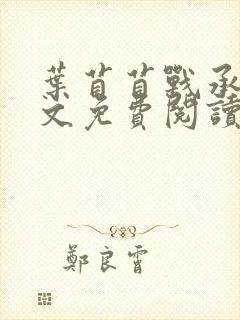 葉苜苜戰承
文免費閱讀
鄭良霄